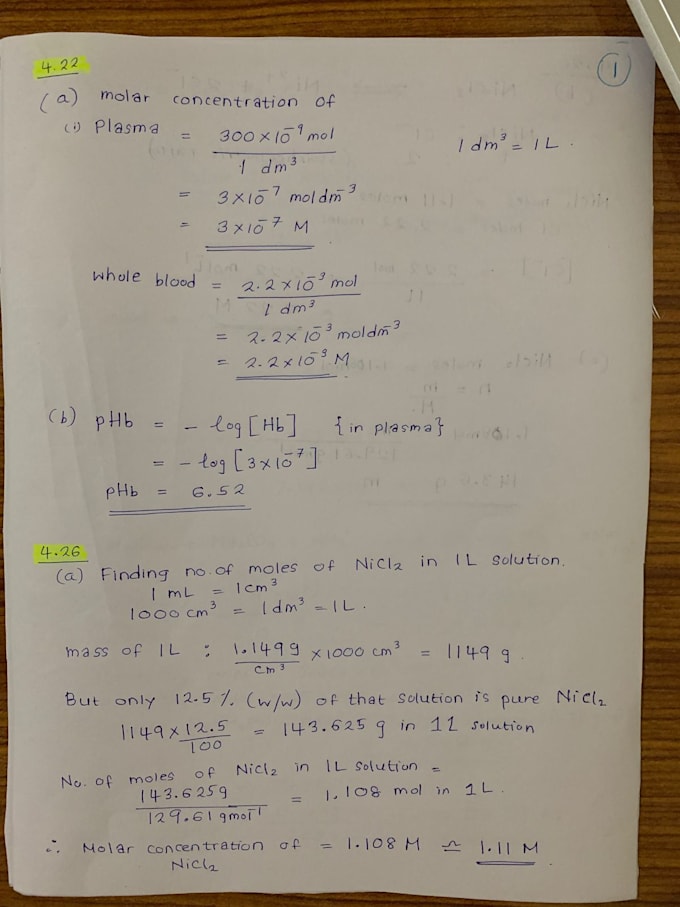 4.22
1
(a) molar concentration of
(i) Plasma = 300 × 10⁻⁹ mol
1 dm³
1 dm³ = 1L.
= 3×10⁻⁷ mol dm⁻³
= 3×10⁻⁷ M
whole blood = 2.2 × 10⁻³ mol
1 dm³
= 2.2 × 10⁻³ mol dm⁻³
= 2.2 × 10⁻³ M
(b) pHb = - log [Hb] {in plasma}
= - log [3×10⁻⁷]
pHb = 6.52
4.26
(a) Finding no. of moles of NiCl2 in 1L solution.
1 mL = 1cm³
1000 cm³ = 1 dm³ = 1L.
mass of 1L : 1.149 g × 1000 cm³ = 1149 g.
cm³
But only 12.5 % (w/w) of that solution is pure NiCl2
1149 × 12.5 = 143.625 g in 1L solution
100
No. of moles of NiCl2 in 1L solution =
143.625g = 1.108 mol in 1L.
129.61 gmol⁻¹
∴ Molar concentration of = 1.108 M ≏ 1.11 M
NiCl2